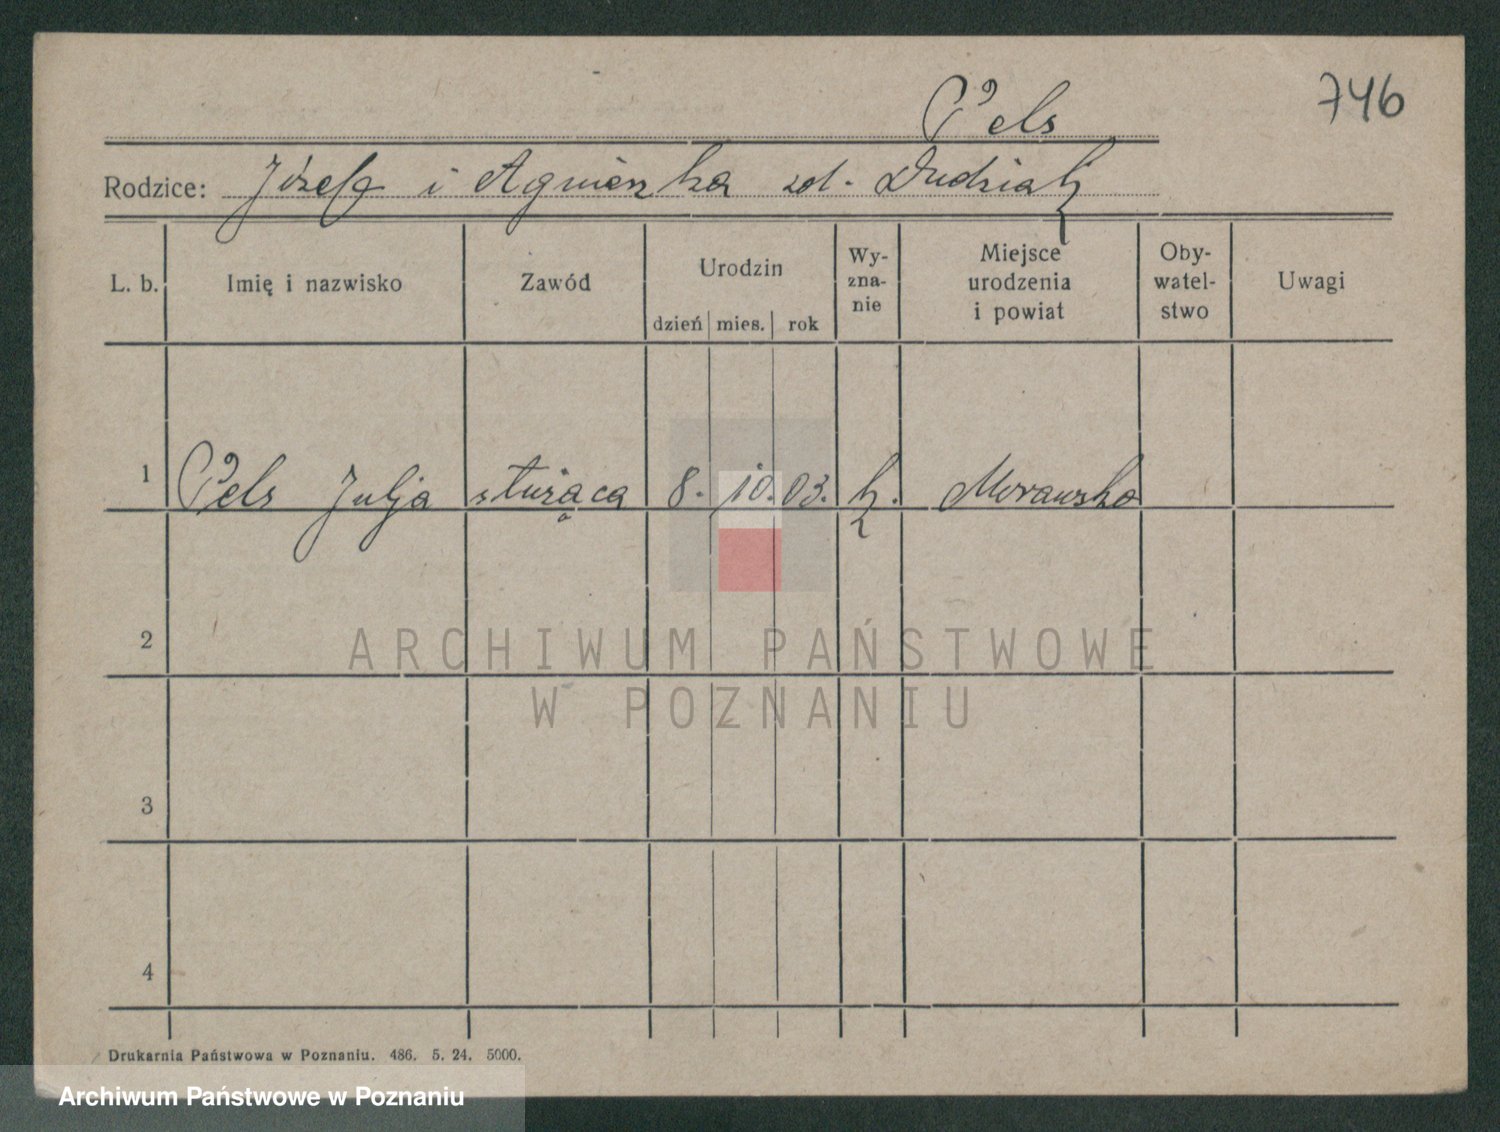 746
Pels
Rodzice: Józef i Agnieszka zd. Dudziak
L. b. Imię i nazwisko Zawód Urodzin Wy- Miejsce Oby- Uwagi
zna- urodzenia watel-
nie i powiat stwo
dzień mies. rok
1 Pels Julja służąca 8. 10. 03. k. Morawsko
2
ARCHIWUM PAŃSTWOWE
W POZNANIU
3
4
Drukarnia Państwowa w Poznaniu. 486. 5. 24. 5000.
Archiwum Państwowe w Poznaniu